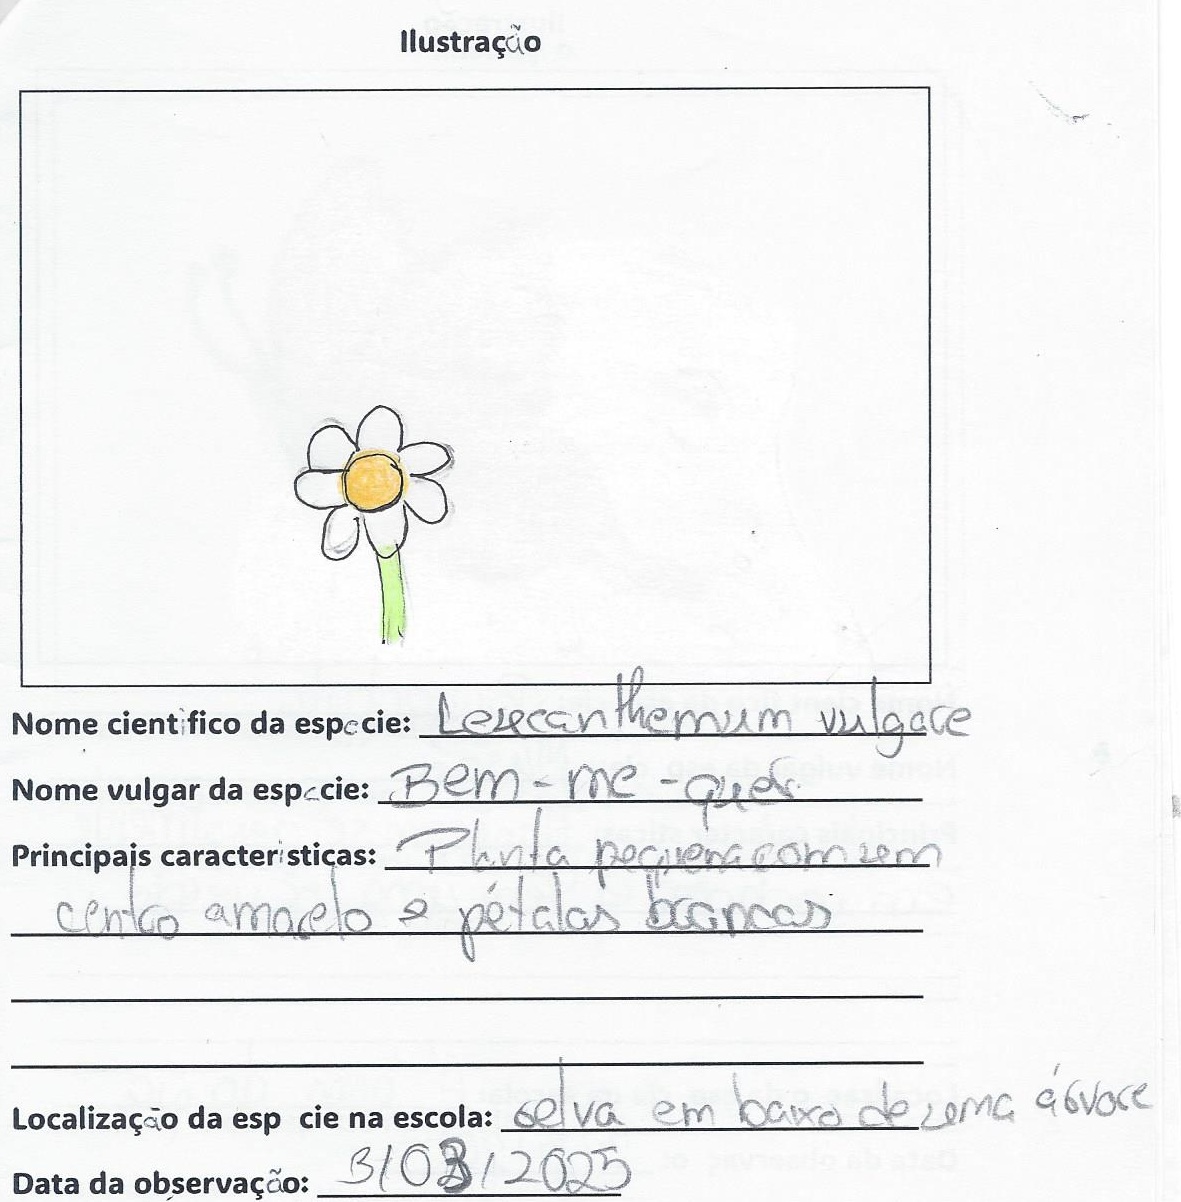 Ilustração
Nome cientifico da espécie: Leucanthemum vulgare
Nome vulgar da espécie: Bem-me-quer
Principais características: Planta pequena com um
centro amarelo e pétalas brancas
Localização da esp cie na escola: selva em baixo de uma árvore
Data da observação: 3/03/2025